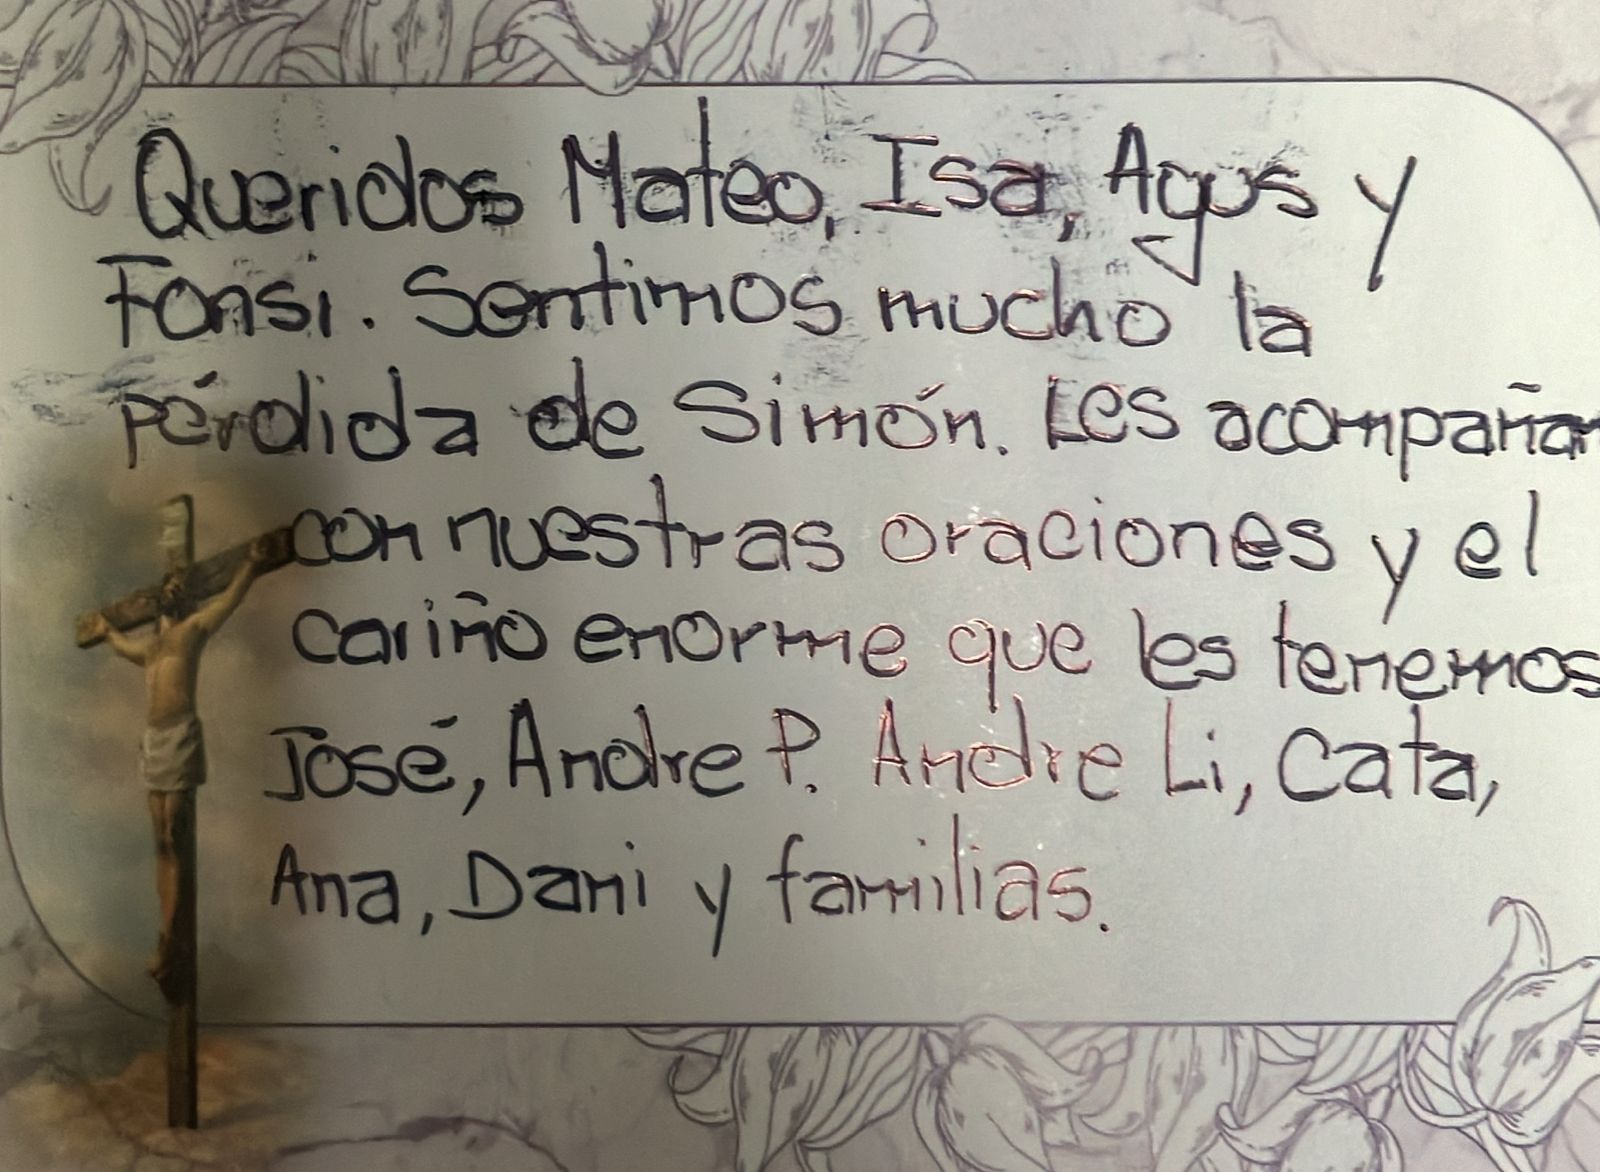 Queridos Mateo, Isa, Agus y
Fonsi. Sentimos mucho la
pérdida de Simón. Les acompañan
con nuestras oraciones y el
cariño enorme que les tenemos
José, Andre P. Andre Li, Cata,
Ana, Dani y familias.